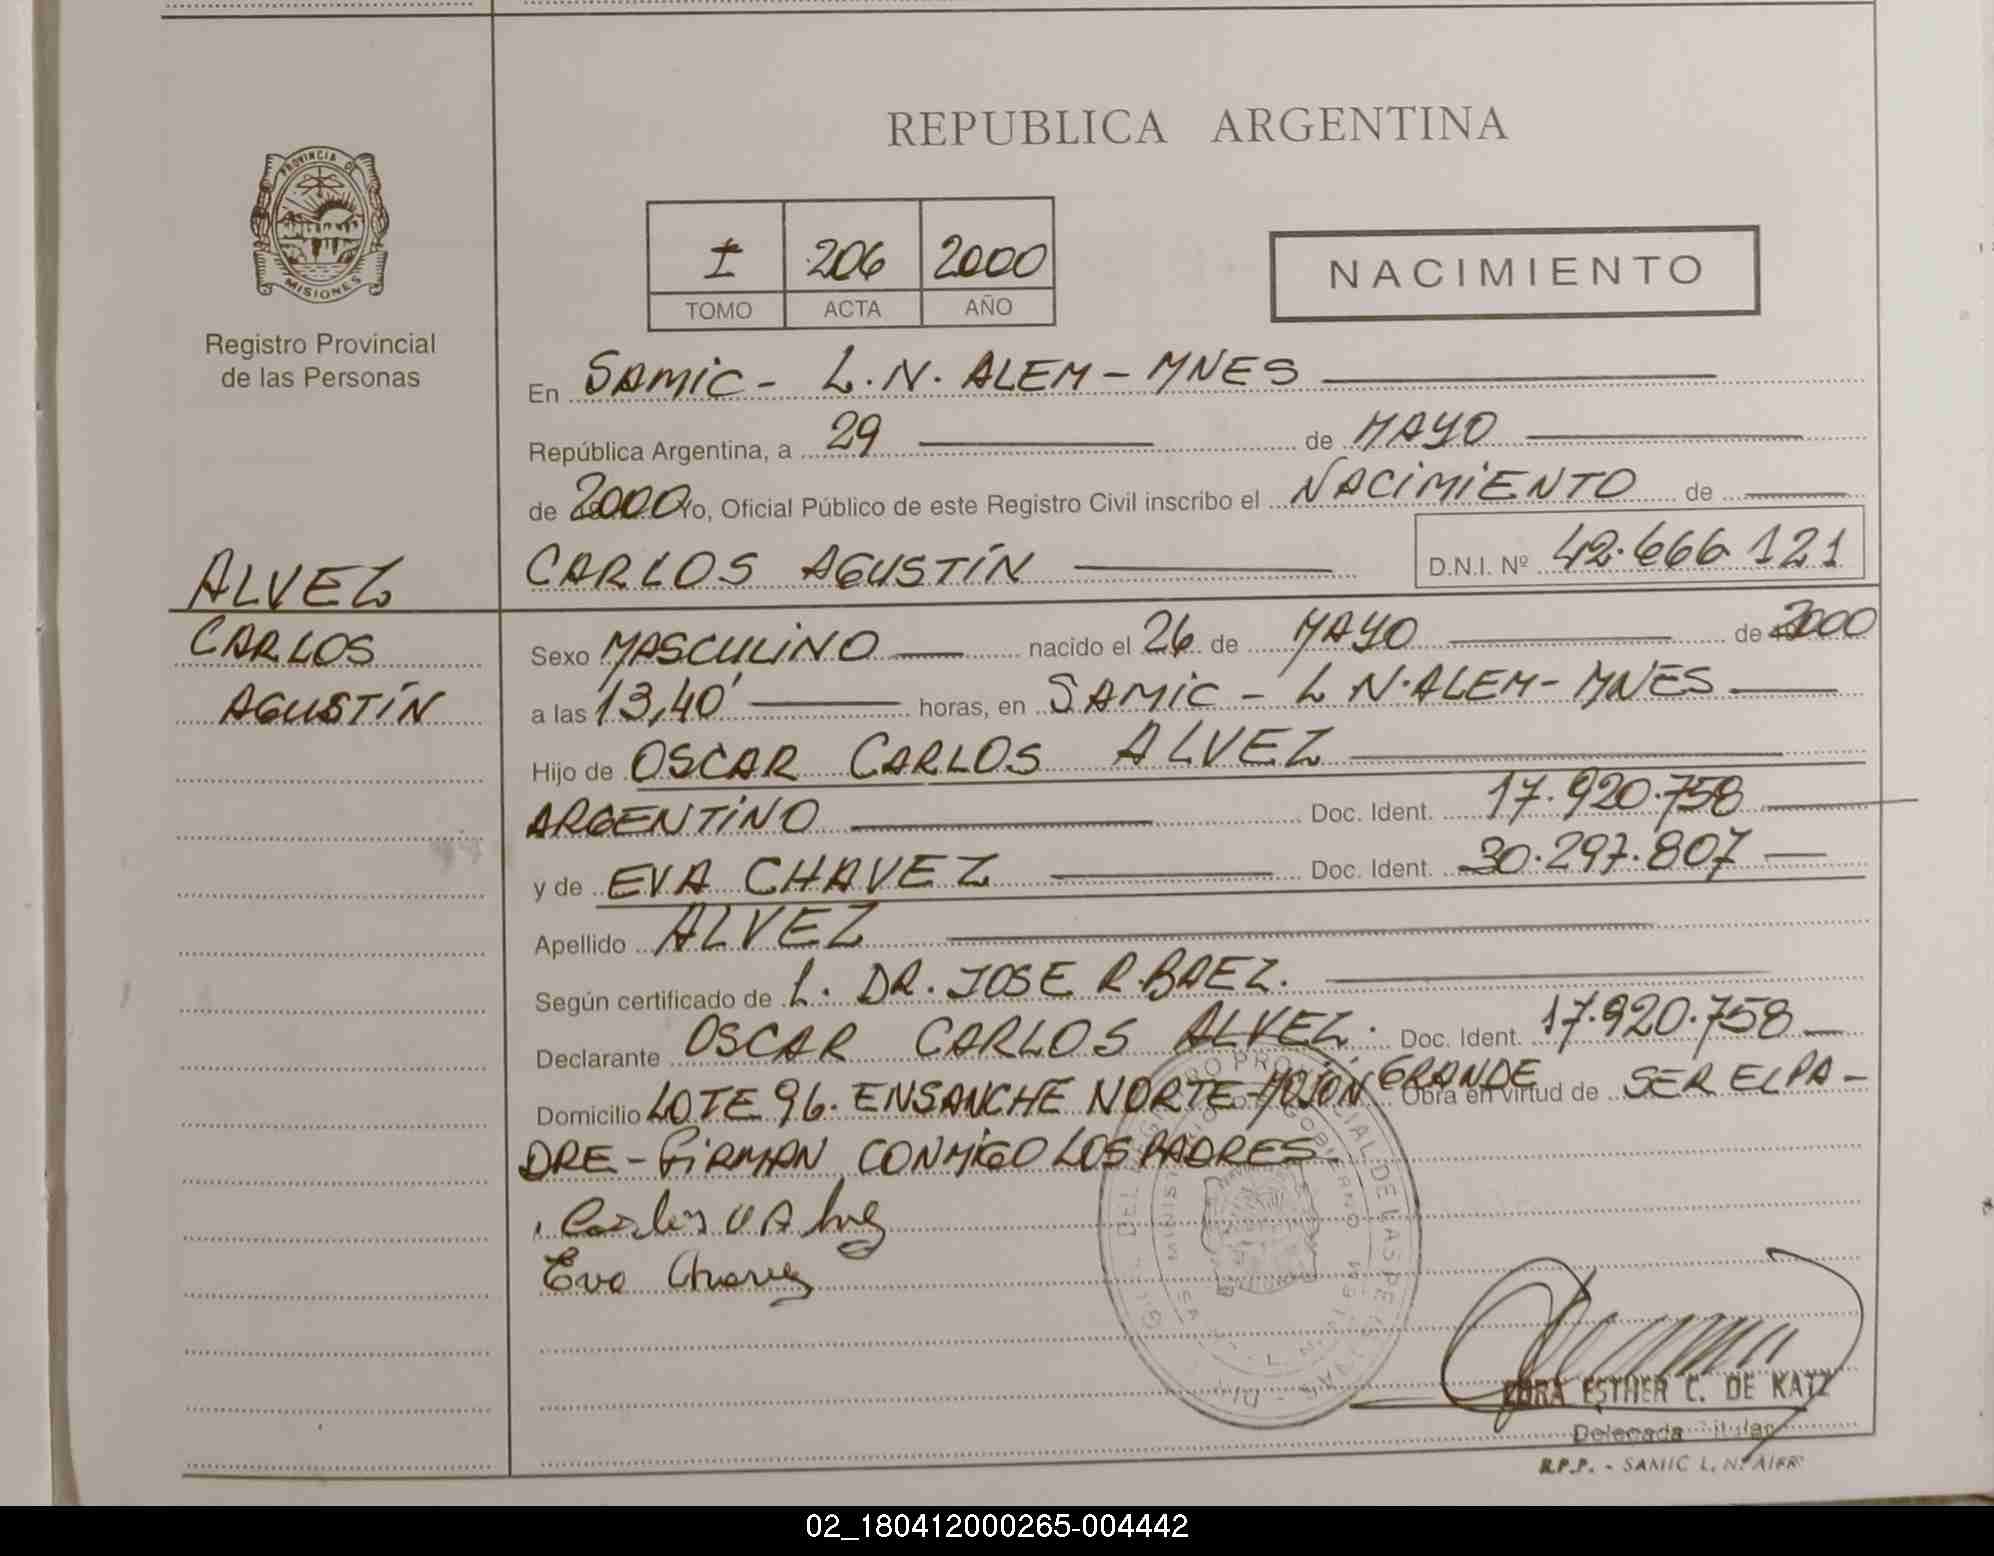 REPUBLICA ARGENTINA
PROVINCIA DE
MISIONES
Registro Provincial
de las Personas
I 206 2000
TOMO ACTA AÑO
NACIMIENTO
En SAMIC - L.N. ALEM - MNES
República Argentina, a 29 de MAYO
de 2000 Yo, Oficial Público de este Registro Civil inscribo el NACIMIENTO de
CARLOS AGUSTÍN D.N.I. Nº 42.666.121
ALVEZ
CARLOS
AGUSTÍN
Sexo MASCULINO nacido el 26 de MAYO de 2000
a las 13,40' horas, en SAMIC - L N. ALEM - MNES
Hijo de OSCAR CARLOS ALVEZ
ARGENTINO Doc. Ident. 17.920.758
y de EVA CHAVEZ Doc. Ident. 30.297.807
Apellido ALVEZ
Según certificado de L. DR. JOSE R. BAEZ.
Declarante OSCAR CARLOS ALVEZ. Doc. Ident. 17.920.758
Domicilio LOTE 96. ENSANCHE NORTE - MOJÓN GRANDE Obra en virtud de SER EL PA-
DRE - FIRMAN CONMIGO LOS PADRES.
Eva Chavez
ESTHER C. DE KATZ
Delegada Titular
R.P.P. - SAMIC L. N. ALEM
02_180412000265-004442